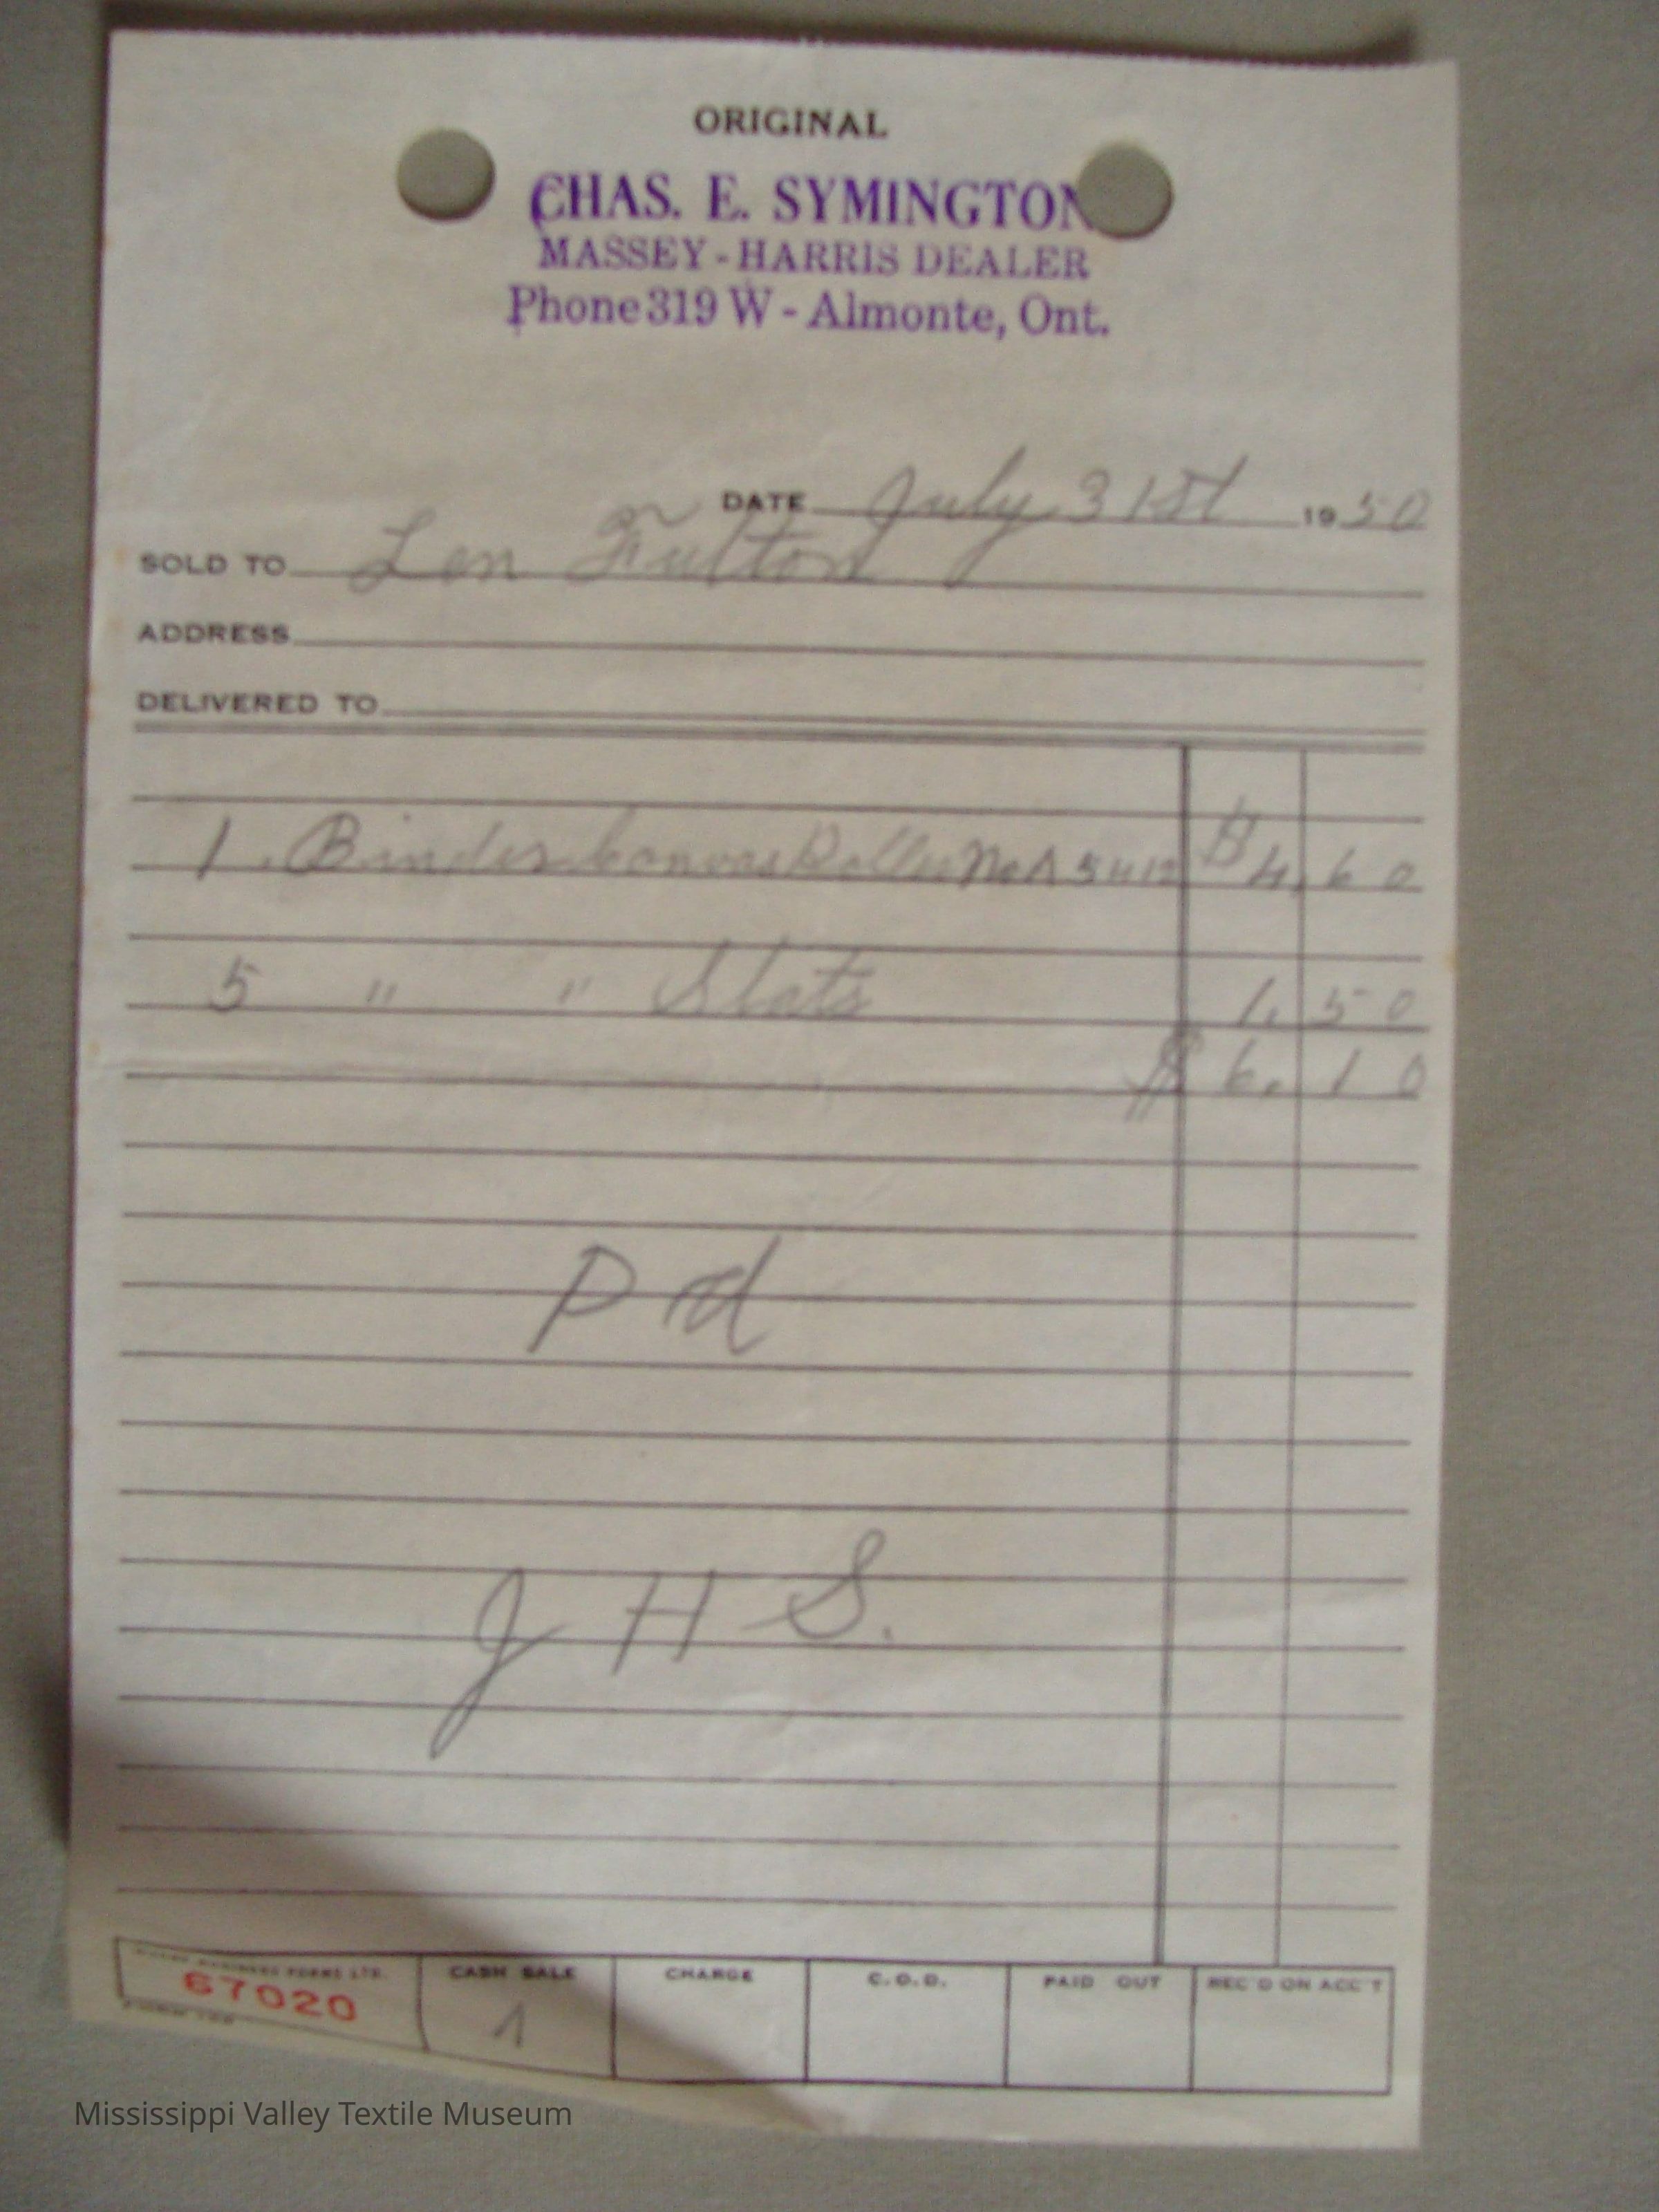 ORIGINAL
CHAS. E. SYMINGTON
MASSEY-HARRIS DEALER
Phone 319 W - Almonte, Ont.
DATE July 31st 1950
SOLD TO Len Fulton
ADDRESS
DELIVERED TO
1. Binder Canvas Roller No A 5412 $ 4.60
5 " " Slats 1.50
$ 6.10
Pd
J H S.
BUSINESS FORMS LTD.
67020
CASH SALE
CHARGE
C.O.D.
PAID OUT
REC'D ON ACC'T
Mississippi Valley Textile Museum